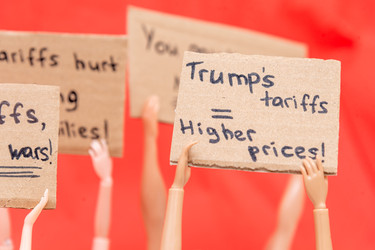 ariffs hurt
ng
ilies!
You
ffs,
wars!
Trump's
tariffs
=
Higher
prices!